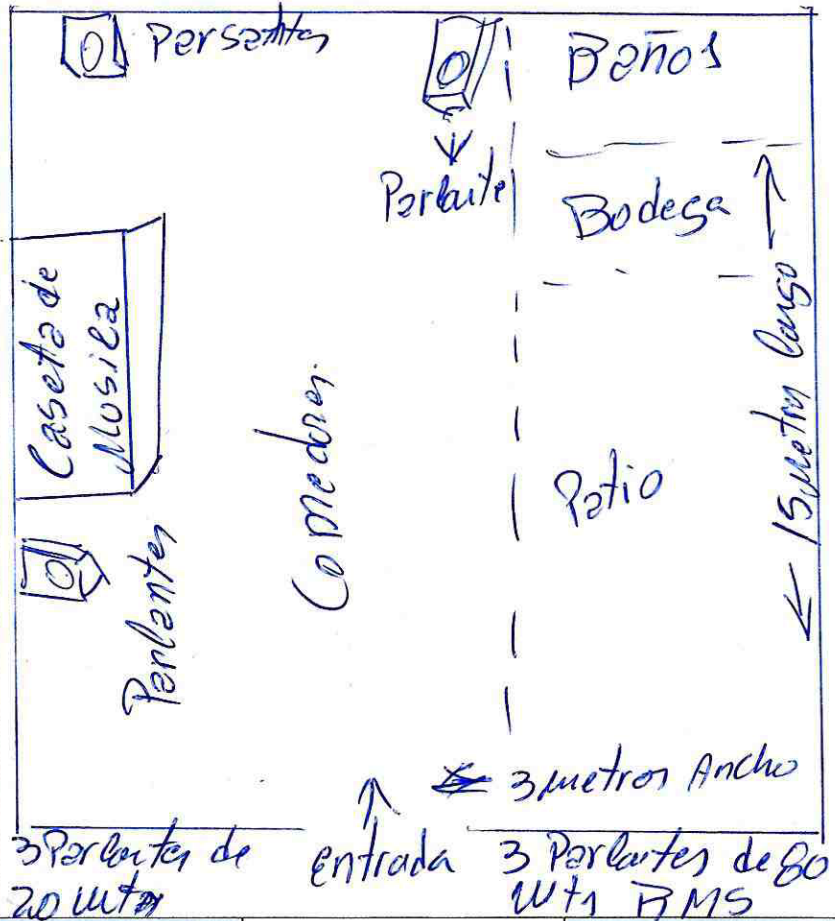 Parlantes
Baños
Parlante
Bodega
Caseta de
Musica
15 metros largo
Comedores
Patio
Parlantes
3 metros Ancho
3 Parlantes de
20 Wtts
entrada
3 Parlantes de 80
Wtts RMS